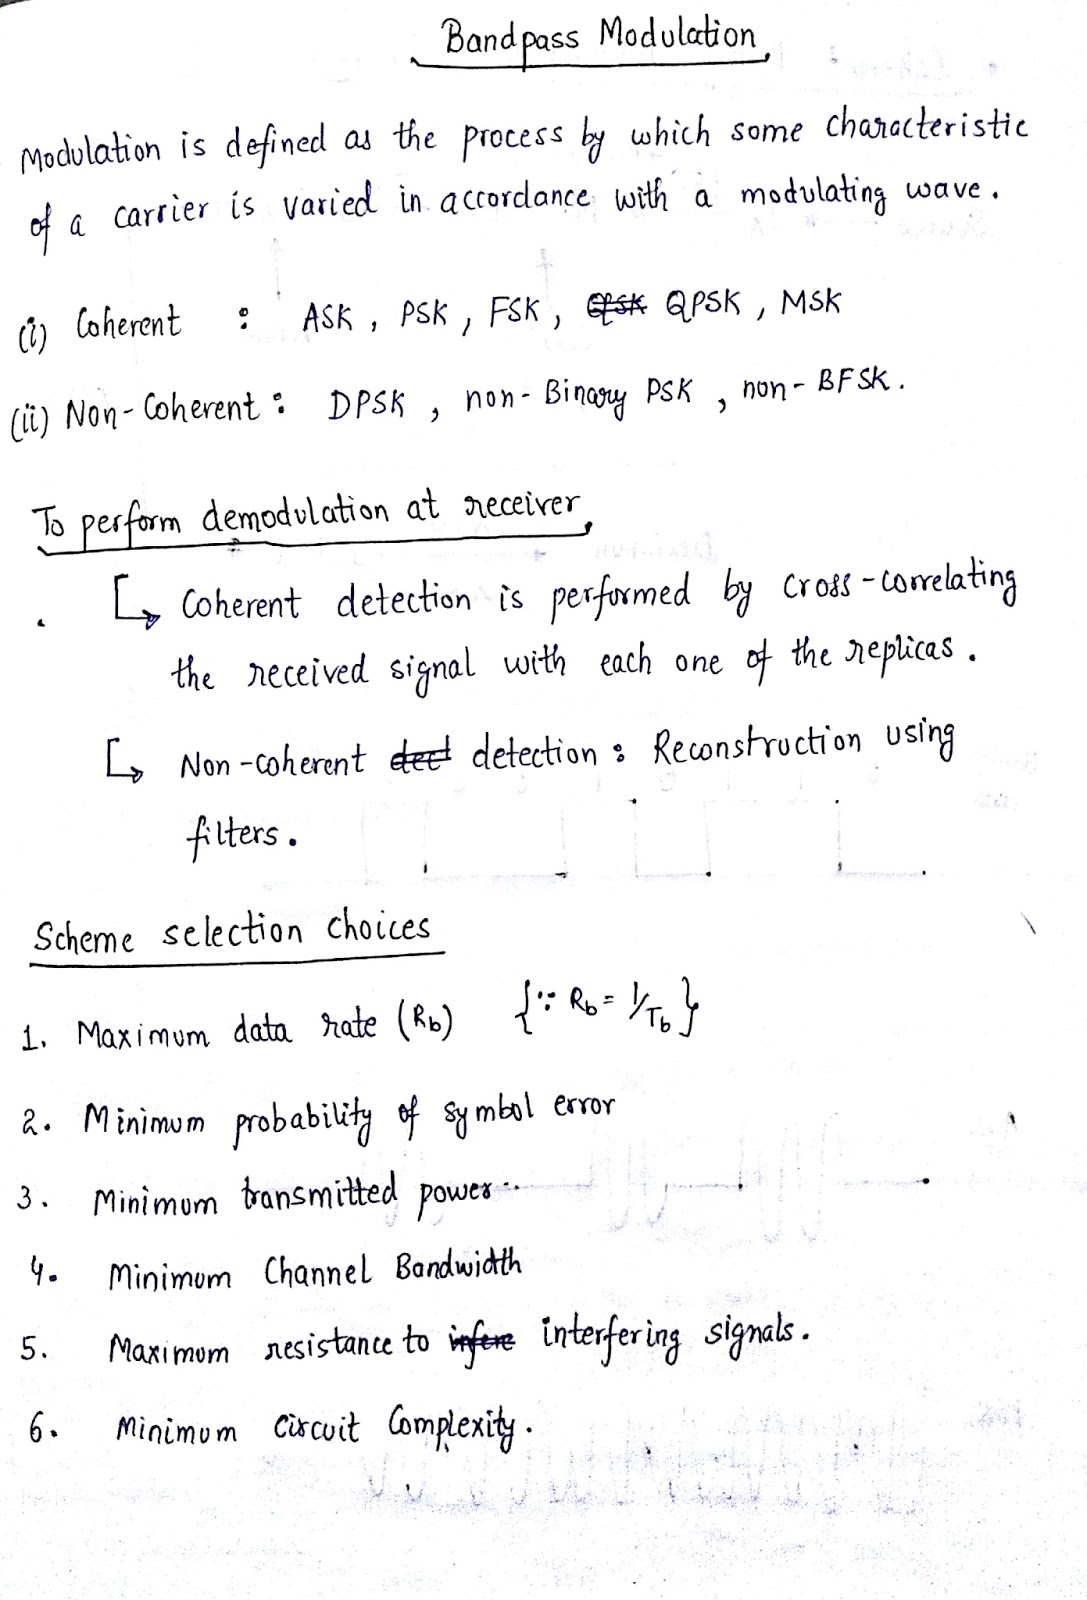 Bandpass Modulation
Modulation is defined as the process by which some characteristic
of a carrier is varied in accordance with a modulating wave.
(i) Coherent : ASK, PSK, FSK, QPSK, MSK
(ii) Non-Coherent : DPSK, non-Binary PSK, non-BFSK.
To perform demodulation at receiver
↳ Coherent detection is performed by cross-correlating
the received signal with each one of the replicas.
↳ Non-coherent detection : Reconstruction using
filters.
Scheme selection choices
1. Maximum data rate (Rb) {∵ Rb = 1/Tb}
2. Minimum probability of symbol error
3. Minimum transmitted power
4. Minimum Channel Bandwidth
5. Maximum resistance to interfering signals.
6. Minimum Circuit Complexity.